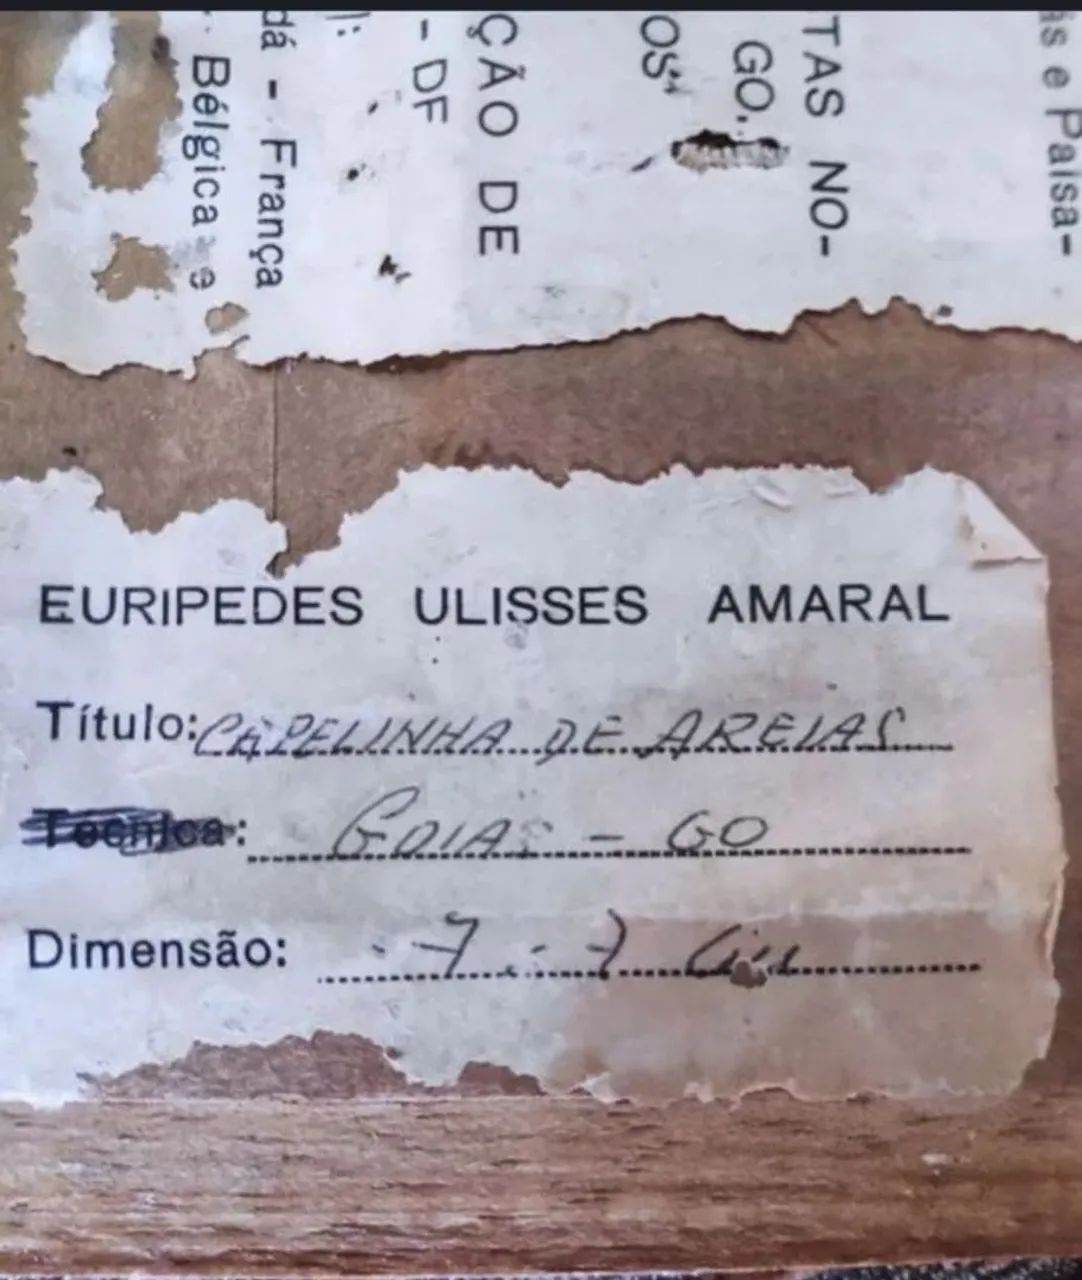 ás e Paisa-
TAS NO-
GO.
OS
ÇÃO DE
- DF
]:
dá - França
Bélgica e
EURIPEDES ULISSES AMARAL
Título: CAPELINHA DE AREIAS
Tecnica: GOIAS - GO
Dimensão: